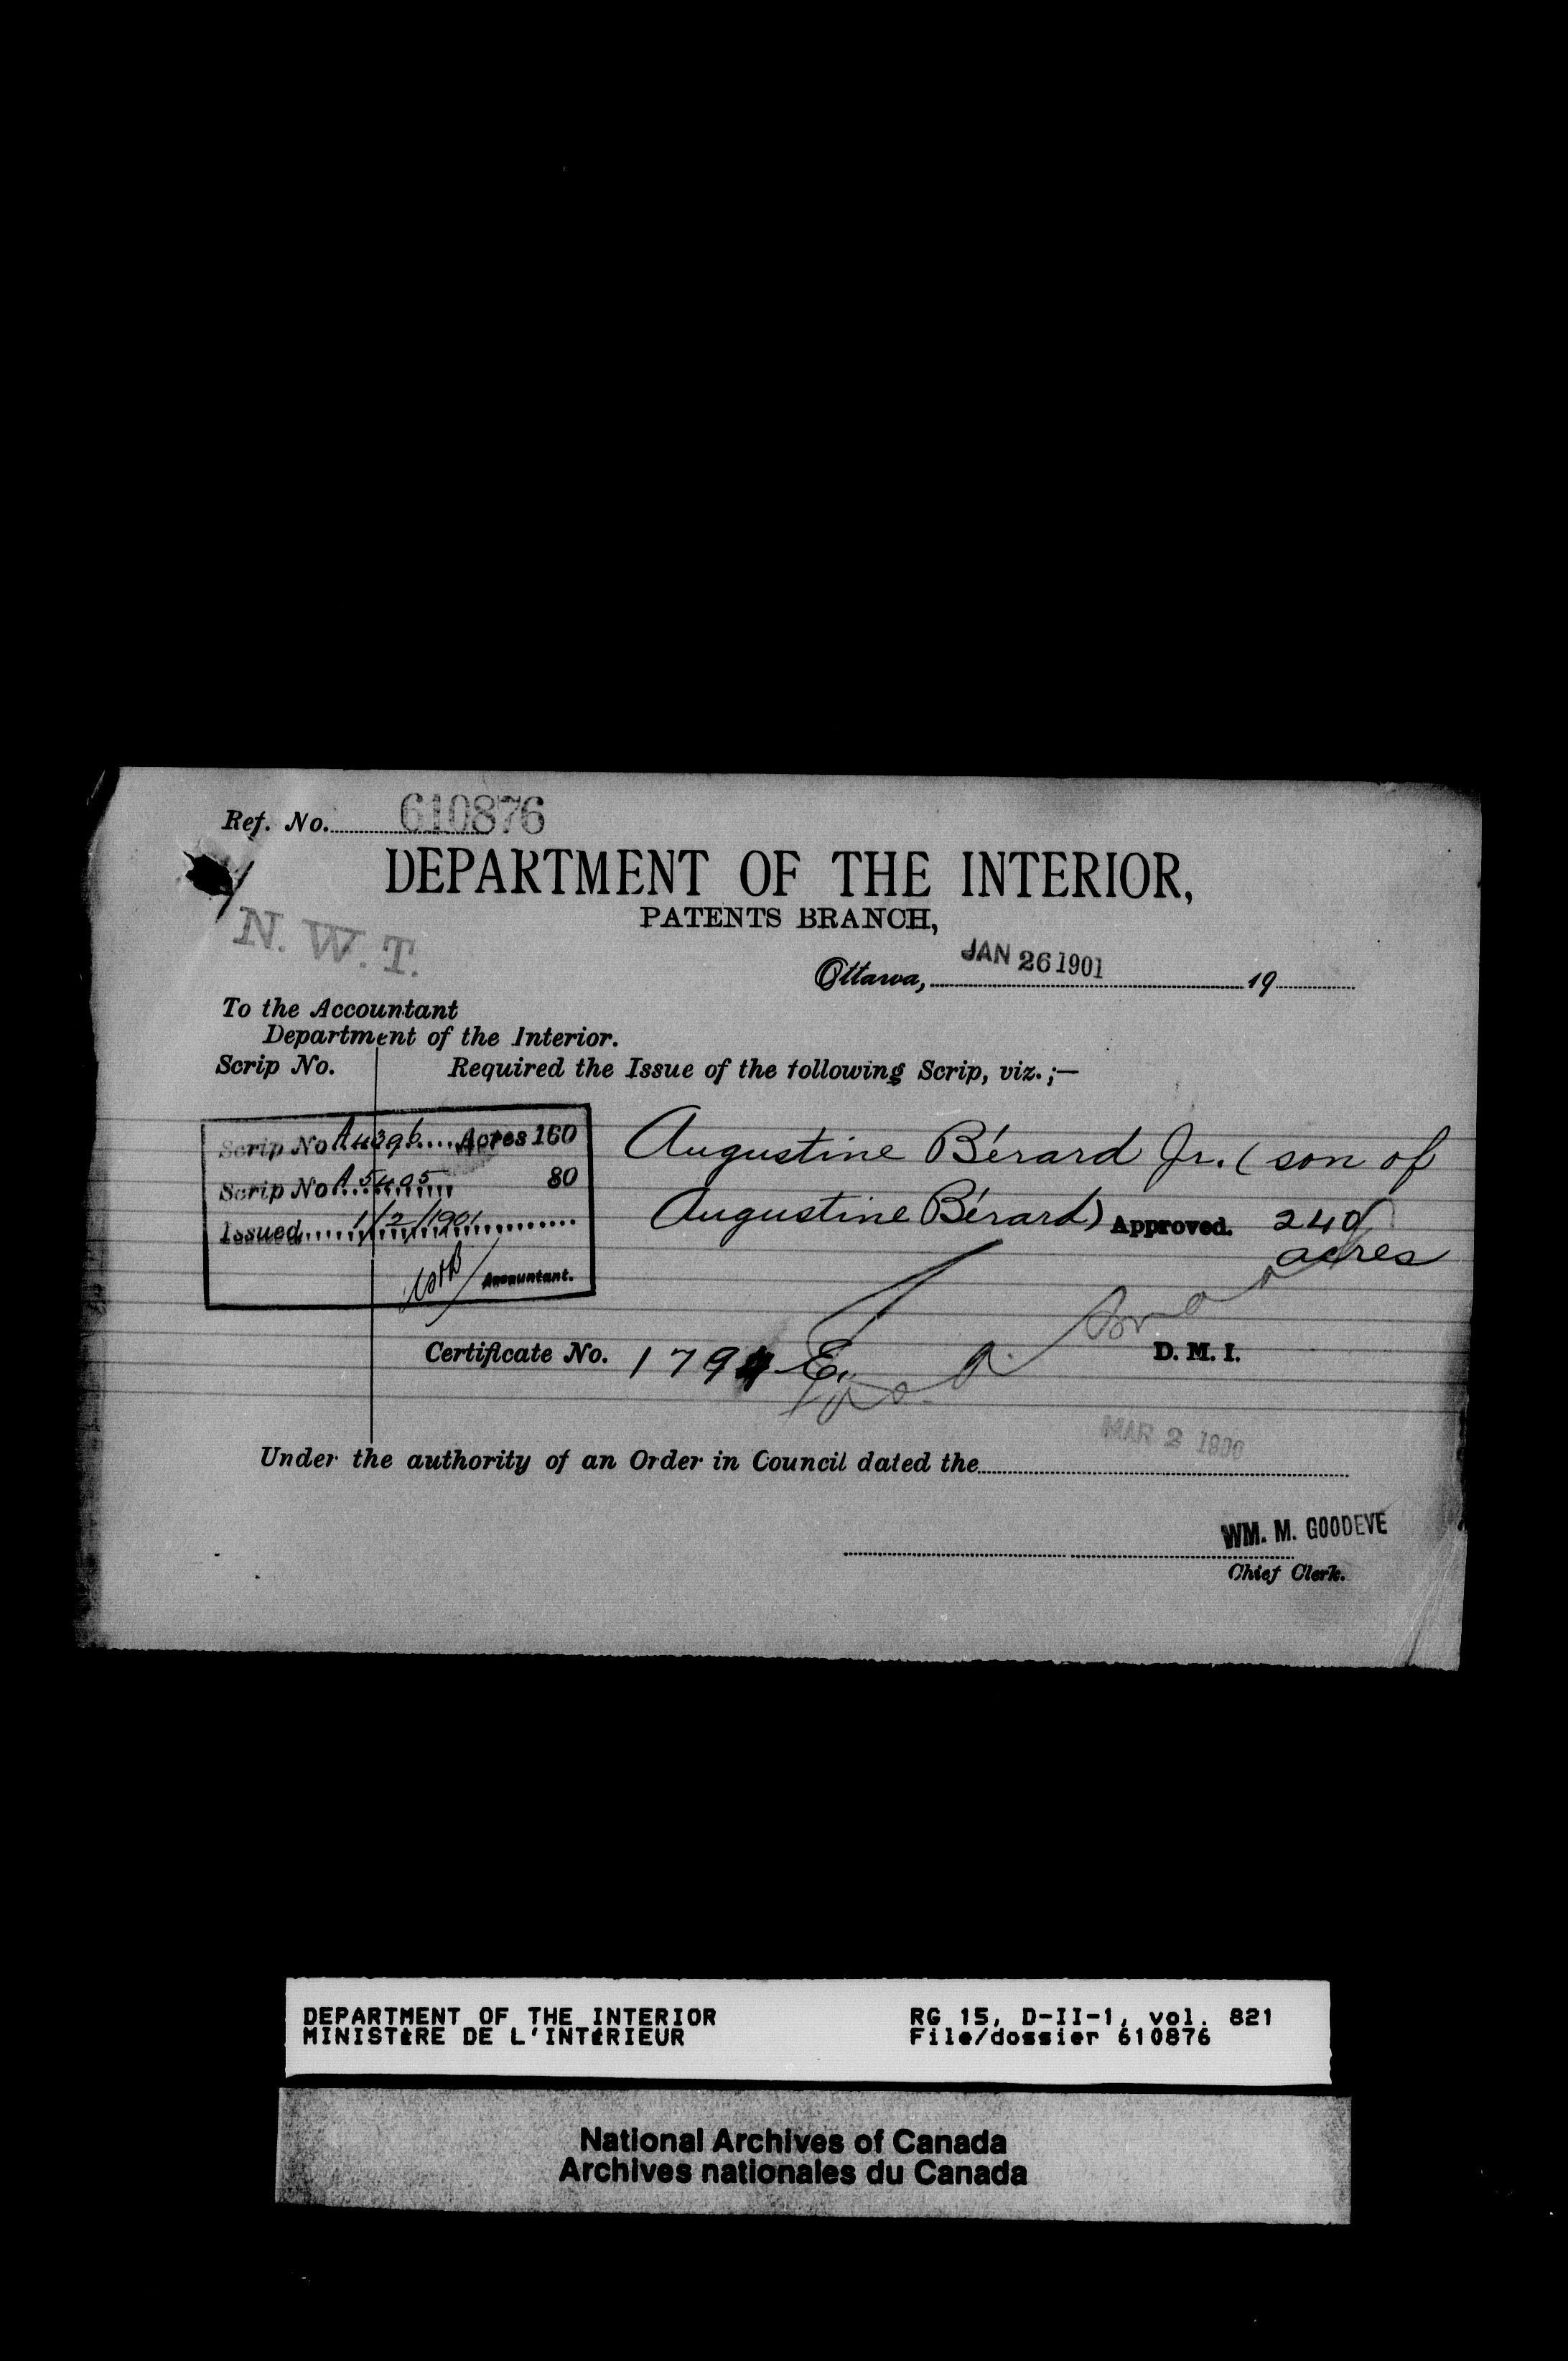 Ref. No. 610876
DEPARTMENT OF THE INTERIOR,
PATENTS BRANCH,
N. W. T.
Ottawa, JAN 26 1901 19
To the Accountant
Department of the Interior.
Scrip No. Required the Issue of the following Scrip, viz.;—
Scrip No. A 4396 Acres 160
Scrip No. A 5405 80
Issued 1/2/1901
Accountant.
Augustine Bérard Jr. (son of
Augustine Bérard) Approved. 240
acres
Certificate No. 1794 E. D. M. I.
Under the authority of an Order in Council dated the MAR 2 1900
WM. M. GOODEVE
Chief Clerk.
DEPARTMENT OF THE INTERIOR RG 15, D-II-1, vol. 821
MINISTÈRE DE L'INTÉRIEUR File/dossier 610876
National Archives of Canada
Archives nationales du Canada